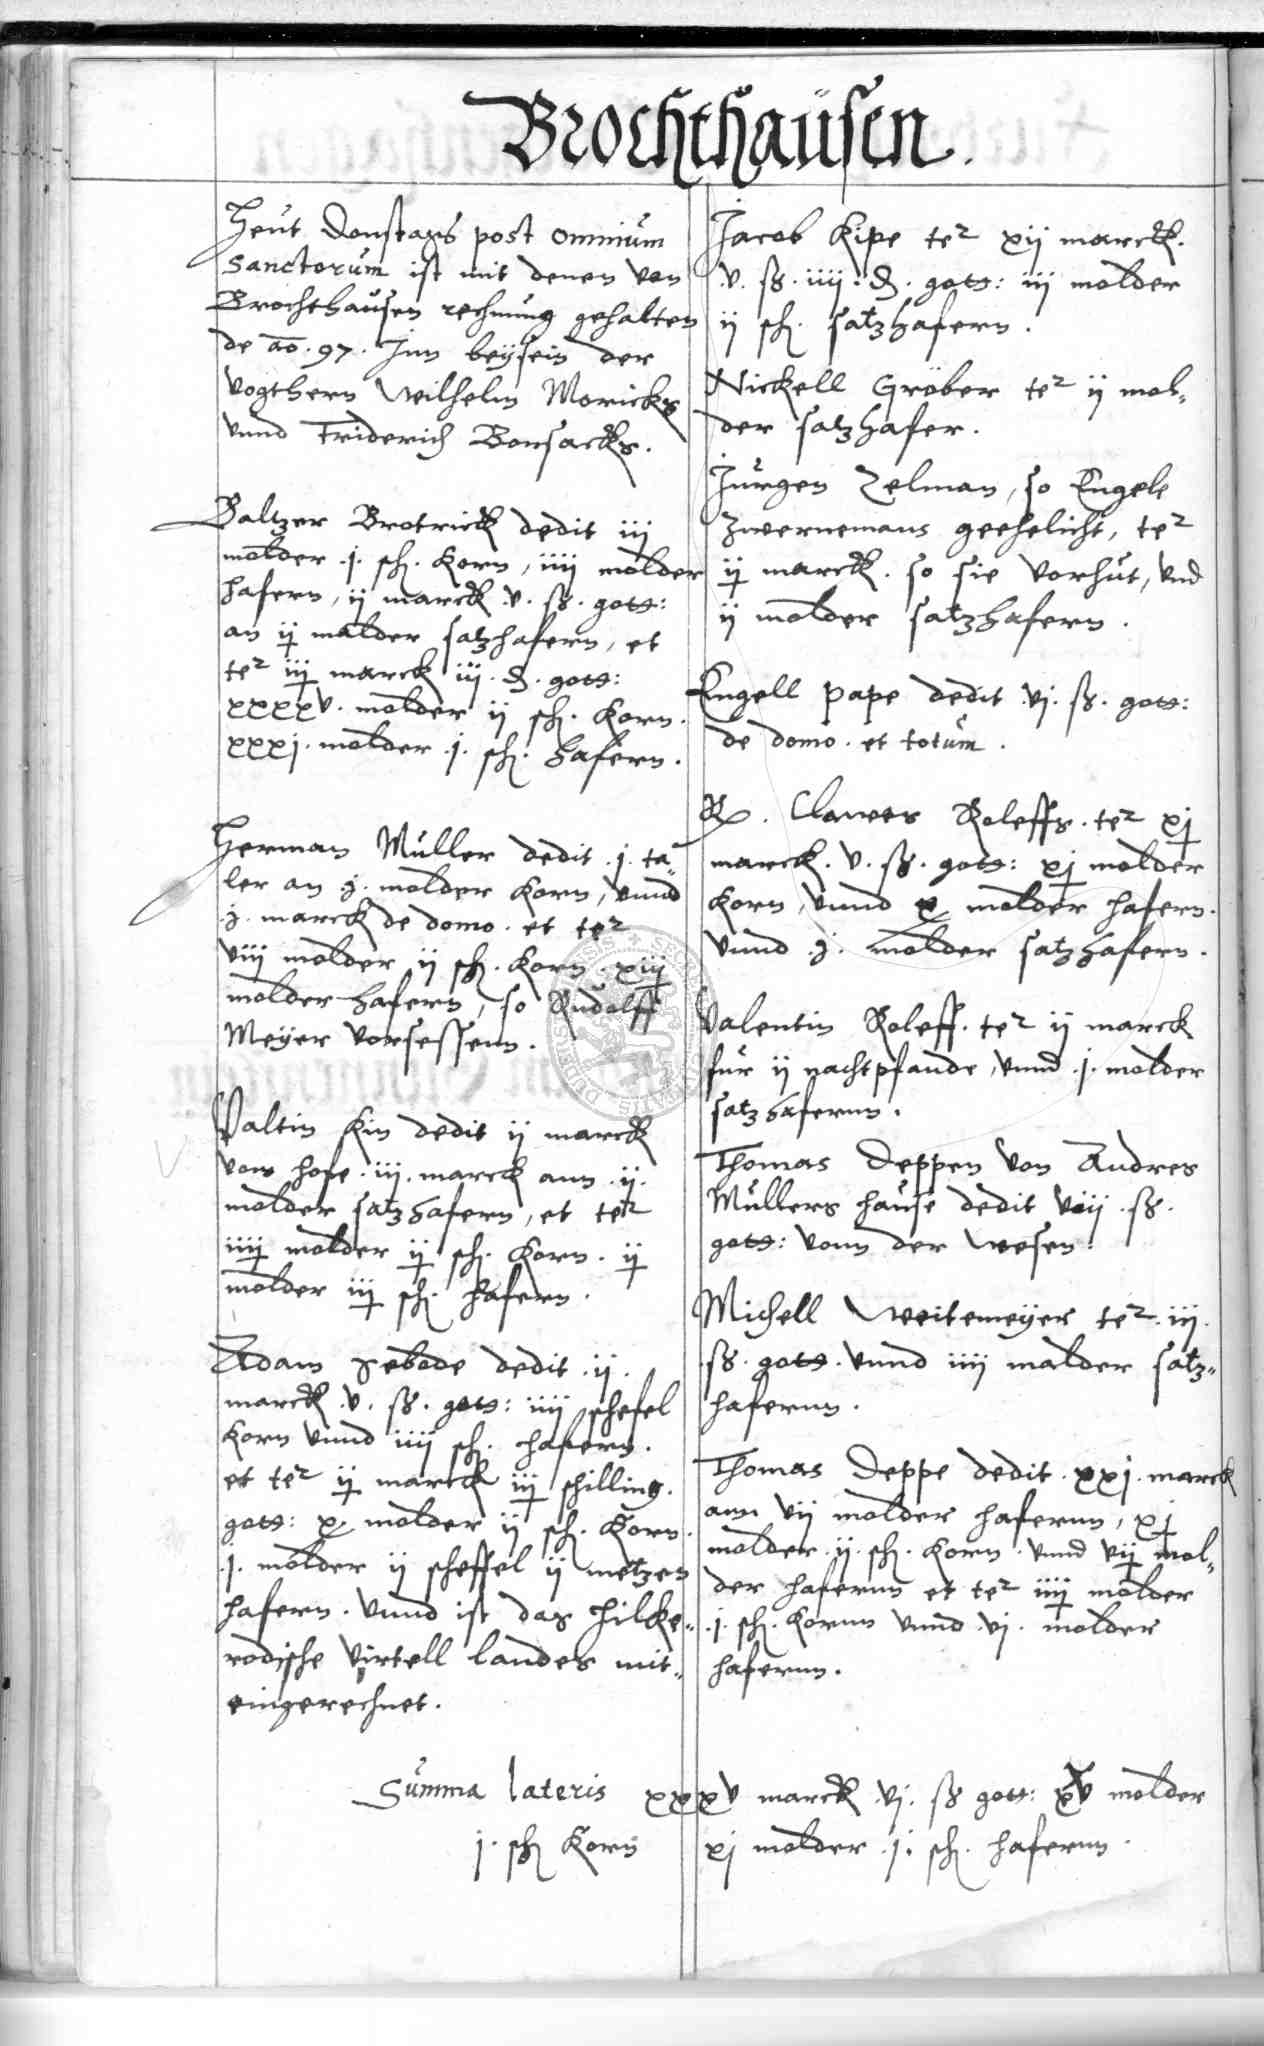 Brochthausen.
Heut Donstags post omnium
sanctorum ist mit denen von
Brochthausen rechnung gehalten
de ao. 97. Jnn beÿsein der
Vogthern Wilhelm Morickes
vnnd Friderich Bonsacks.
Baltzer Brotrick dedit iij
molder .j. sch. Korn, iiij molder
hafern, ij marck .v. ß. gott:
an ij malder satzhafern, et
ter iij marck iij. d. gott:
xxxxv. molder ij sch. Korn.
xxxj. molder .j. sch. hafern.
Herman Müller dedit .j. ta"
ler an .j. molder Korn, vnnd
.j. marck de domo. et ter
viij molder ij sch. Korn. xiij
molder hafern, so Rudolff
Meyer vorsessenn.
Valtin Kin dedit ij marck
vom hofe .iij. marck ann .ij.
molder satzhafern, et ter
iiij molder ij sch. Korn. ij
molder iij sch. hafern.
Adam Sebode dedit .ij.
marck .v. ß. gott: iiij schefel
Korn vnnd iiij sch. hafern.
et ter ij marck iij schilling.
gott: x. molder ij sch. Korn.
.j. molder ij scheffel ij metzen
hafern. Vnnd ist das Hilke"
rodische virtell landes mit"
eingerechnet.
Jacob Kipe ter xij marck.
.v. ß. iiij. d. gott: iij molder
ij sch. satzhafern.
Nickell Gröber ter ij mol"
der satzhafer.
Jürgen Zelman, so Engele
Zwernemans geehelicht, ter
ij marck. so sie vorhüt, vnd
ij molder satzhafern.
Engell Pape dedit vj. ß. gott:
de domo. et totum.
Clawes Roleffs. ter xj
marck. v. ß. gott: xj molder
Korn, vnnd x molder hafern.
vnnd .j. molder satzhafern.
Valentin Roleff. ter ij marck
für ij nachtpfande, vnnd .j. molder
satzhafernn.
Thomas Deppen von Andres
Müllers hause dedit viij .ß.
gott: vonn der wesen.
Michell Weitemeÿer ter .iij.
.ß. gott. vnnd iiij malder satz"
hafernn.
Thomas Deppe dedit .xxj. marck
ann vij molder hafernn, xj
molder .ij. sch. Korn. vnnd vij mol"
der hafernn et ter iiij molder
.j. sch. Kornn vnnd .vj. molder
hafernn.
Summa lateris xxxv marck .vj. ß gott: xv molder
j. sch Korn xj molder .j. sch. hafernn.